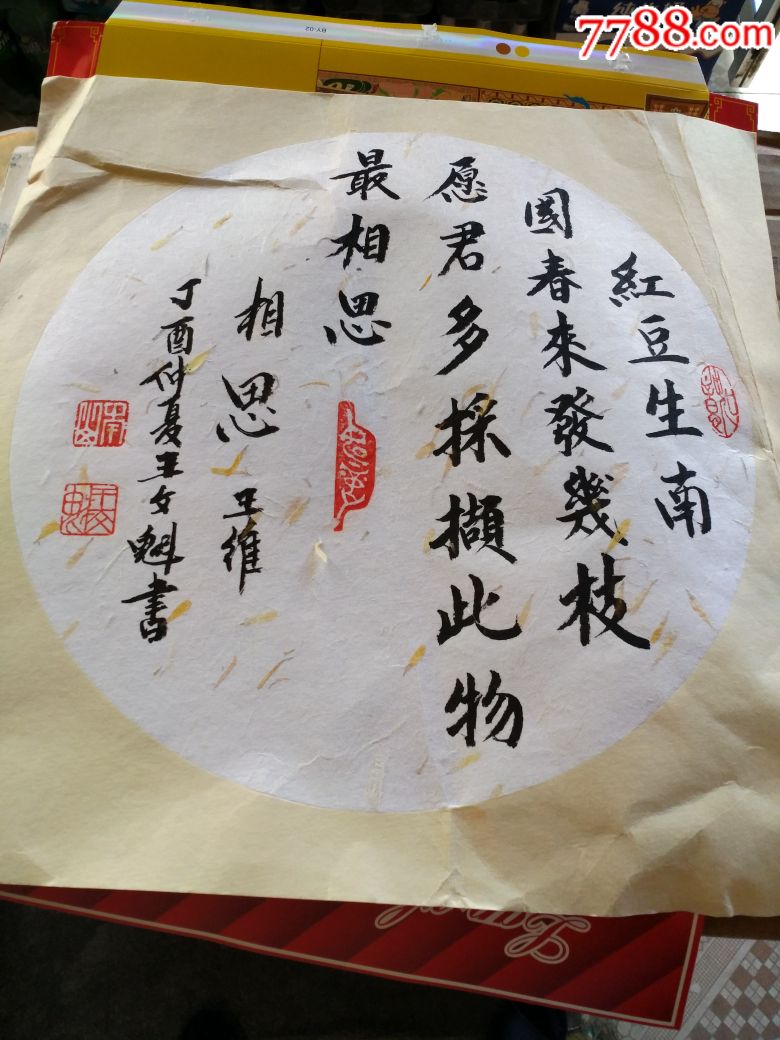 7788.com
BY-02
紅豆生南
國春來發幾枝
愿君多採擷此物
最相思
相思 王維
丁酉仲夏王文魁書